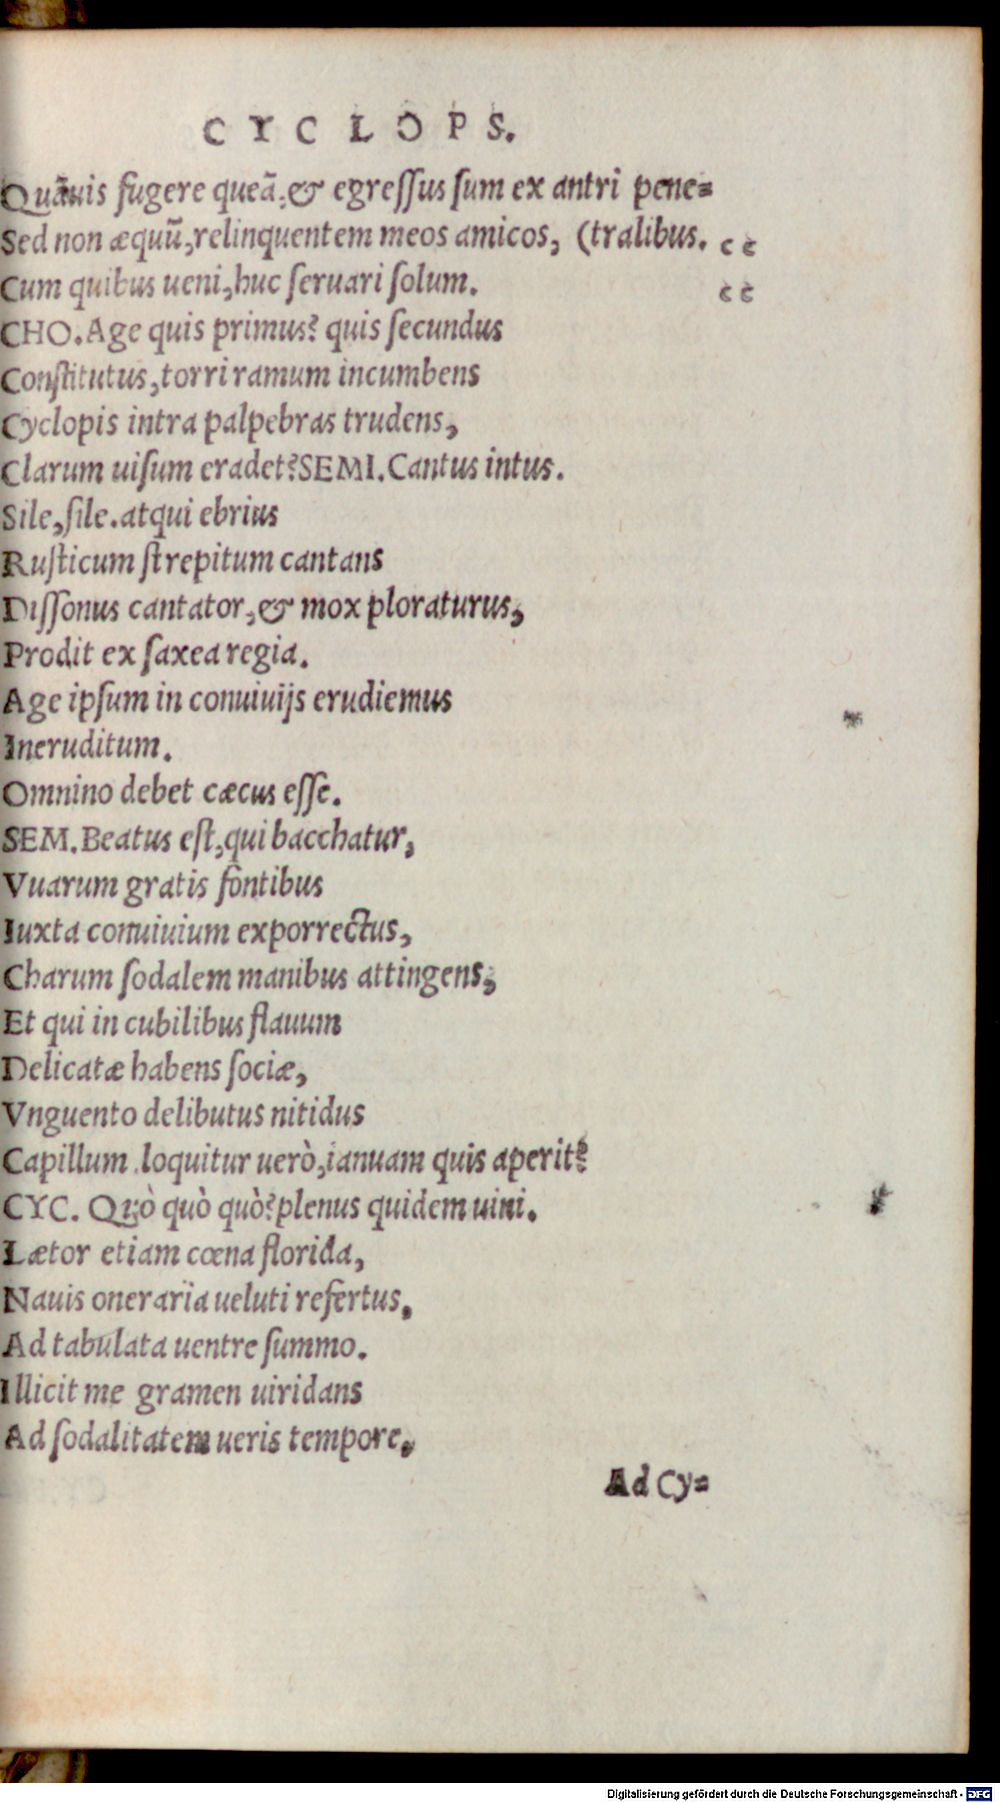 CYCLOPS.
Quãuis fugere queã,& egressus sum ex antri pene=
Sed non æquũ,relinquentem meos amicos, (tralibus.
Cum quibus ueni,huc seruari solum.
CHO.Age quis primus? quis secundus
Constitutus,torri ramum incumbens
Cyclopis intra palpebras trudens,
Clarum uisum eradet?SEMI.Cantus intus.
Sile,sile.atqui ebrius
Rusticum strepitum cantans
Dissonus cantator,& mox ploraturus,
Prodit ex saxea regia.
Age ipsum in conuiuijs erudiemus
Ineruditum.
Omnino debet cæcus esse.
SEM.Beatus est,qui bacchatur,
Vuarum gratis fontibus
Iuxta conuiuium exporrectus,
Charum sodalem manibus attingens,
Et qui in cubilibus flauum
Delicatæ habens sociæ,
Vnguento delibutus nitidus
Capillum loquitur uerò,ianuam quis aperit?
CYC. Quò quò quò?plenus quidem uini.
Lætor etiam cœna florida,
Nauis oneraria ueluti refertus,
Ad tabulata uentre summo.
Illicit me gramen uiridans
Ad sodalitatem ueris tempore,
Ad Cy=
Digitalisierung gefördert durch die Deutsche Forschungsgemeinschaft - DFG